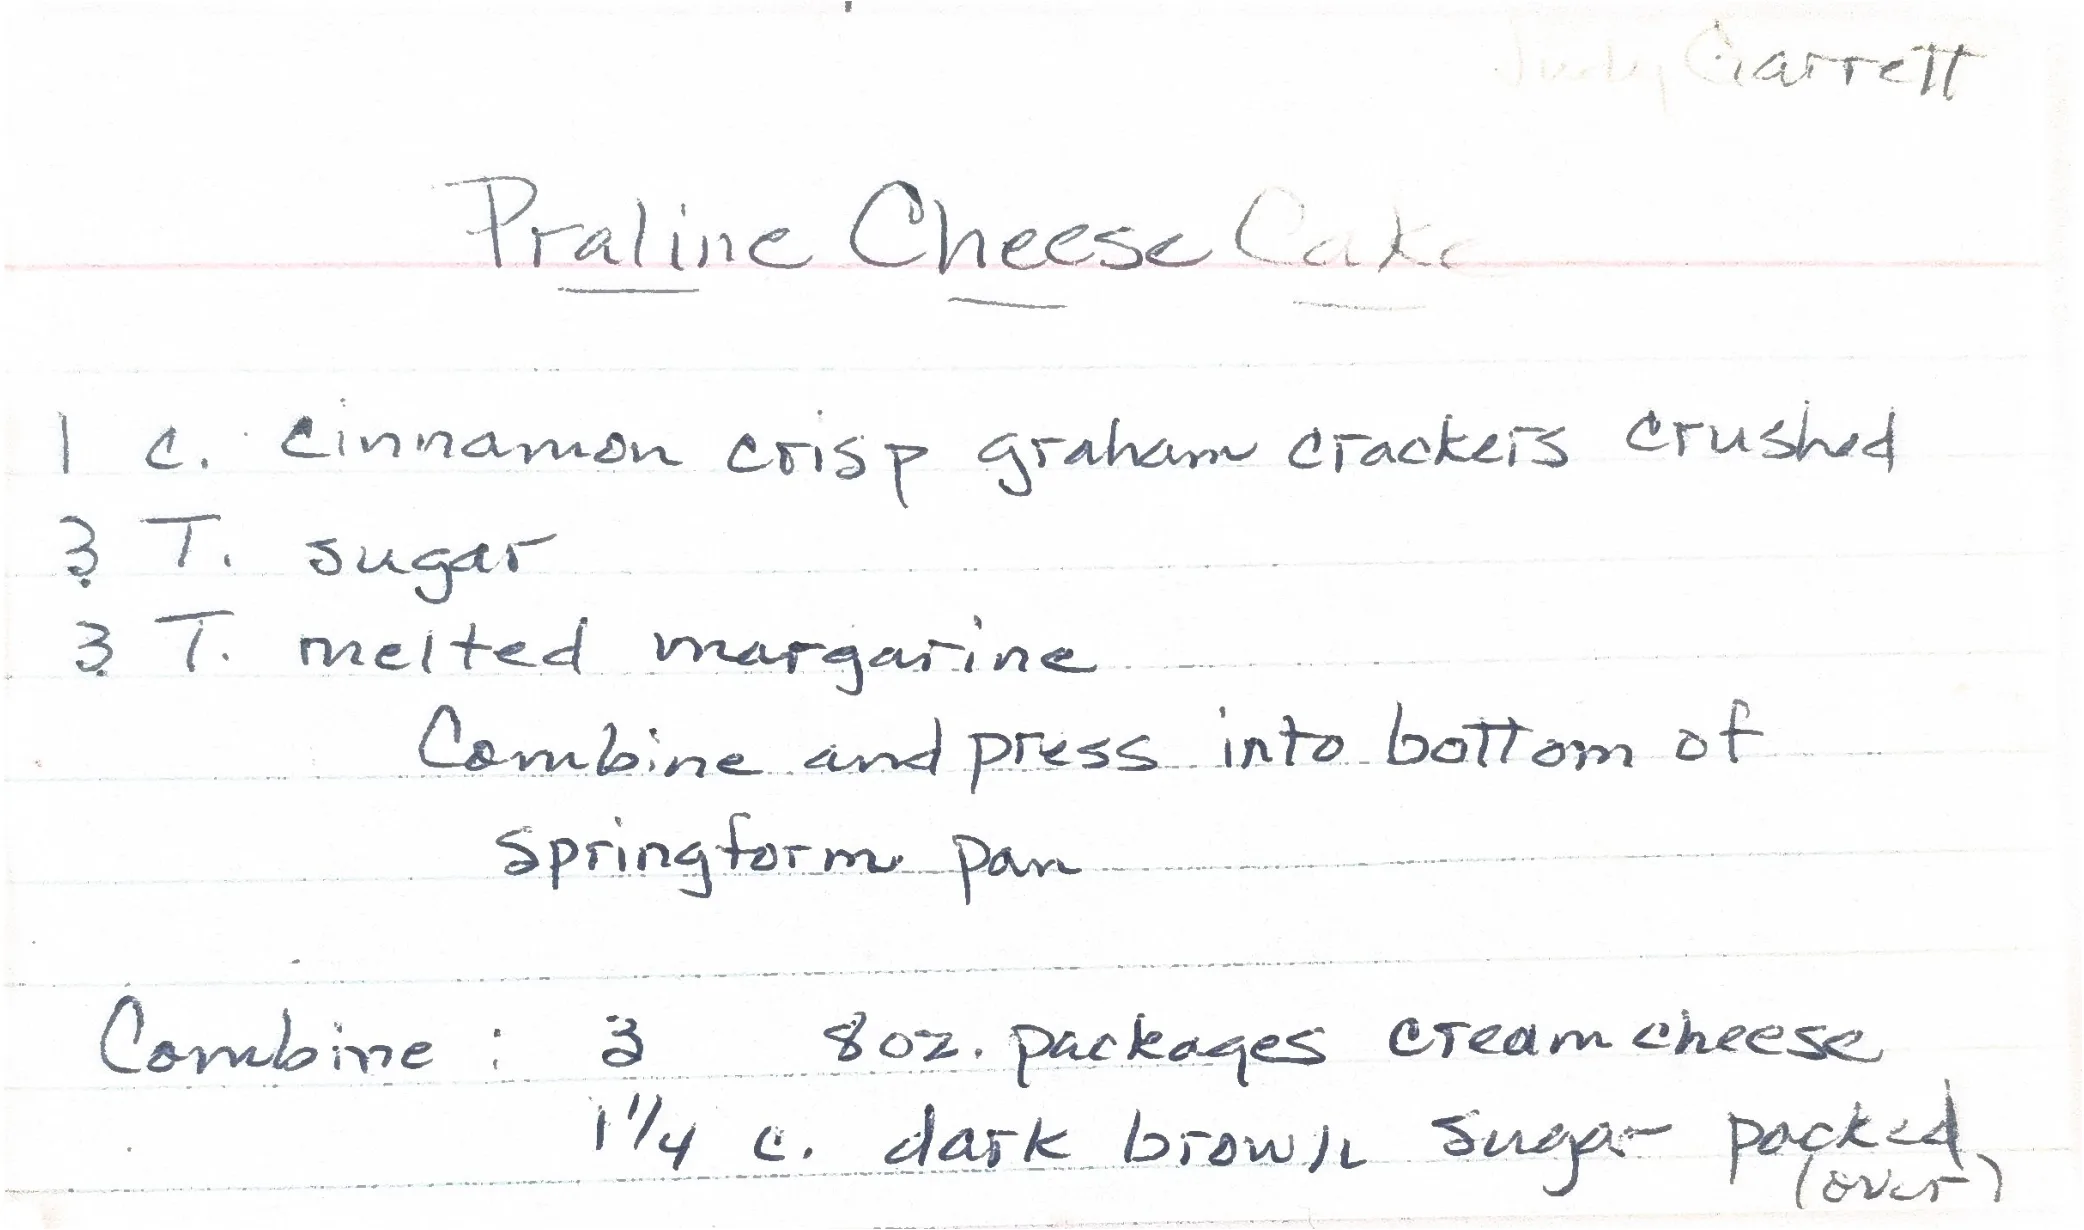 Judy Garrett
Praline Cheese Cake
1 c. cinnamon crisp graham crackers crushed
3 T. sugar
3 T. melted margarine
Combine and press into bottom of
springform pan
Combine : 3 8oz. packages cream cheese
1 1/4 c. dark brown sugar packed
(over)